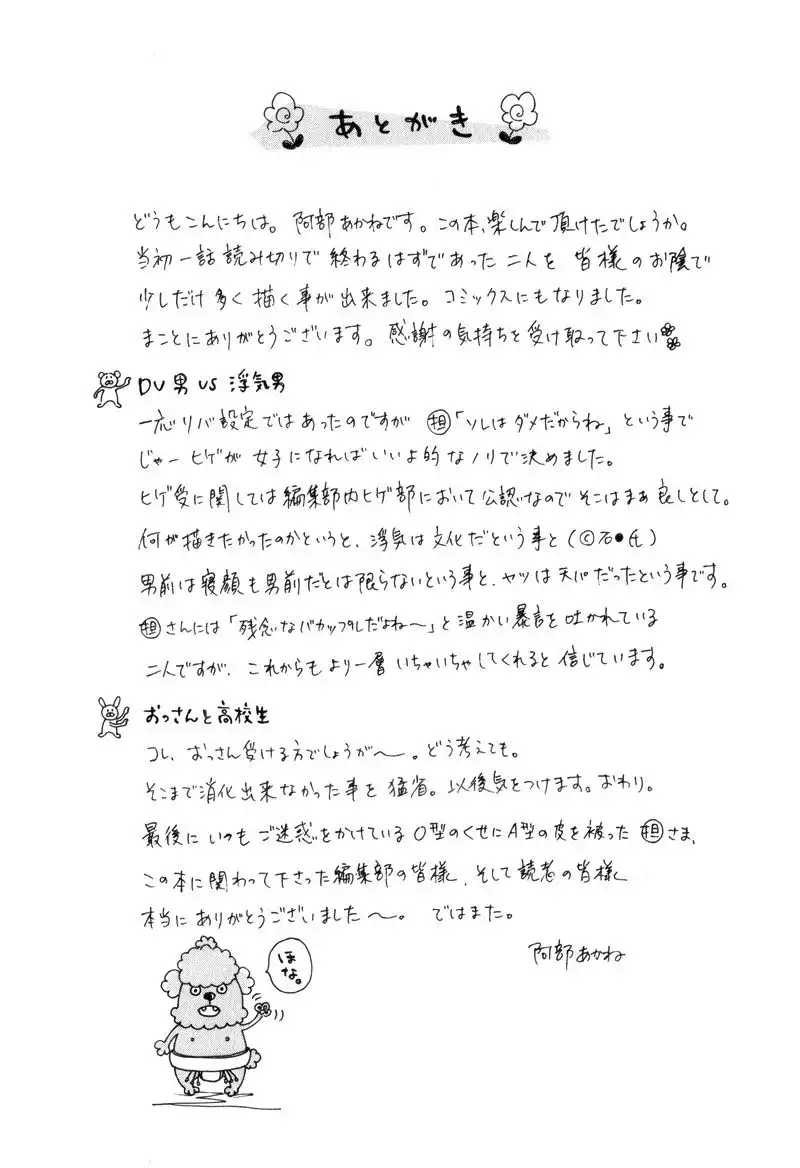 あとがき
どうもこんにちは。阿部あかねです。この本、楽しんで頂けたでしょうか。
当初一話読み切りで終わるはずであった二人を皆様のお陰で
少しだけ多く描く事が出来ました。コミックスにもなりました。
まことにありがとうございます。感謝の気持ちを受け取って下さい
DV男VS浮気男
一応リバ設定ではあったのですが 担「ソレはダメだからね」という事で
じゃーヒゲが女子になればいいよ的なノリで決めました。
ヒゲ受に関しては編集部内ヒゲ部において公認なのでそこはまぁ良しとして。
何が描きたかったのかというと、浮気は文化だという事と(©石●氏)
男前は寝顔も男前だとは限らないという事と、ヤツは天パだったという事です。
担さんには「残念なバカップルだよね〜」と温かい暴言を吐かれている
二人ですが、これからもより一層いちゃいちゃしてくれると信じています。
おっさんと高校生
コレ、おっさん受ける方でしょうが〜。どう考えても。
そこまで消化出来なかった事を猛省。以後気をつけます。おわり。
最後にいつもご迷惑をかけているO型のくせにA型の皮を被った担さま、
この本に関わって下さった編集部の皆様、そして読者の皆様
本当にありがとうございました〜。ではまた。
阿部あかね
ほな。